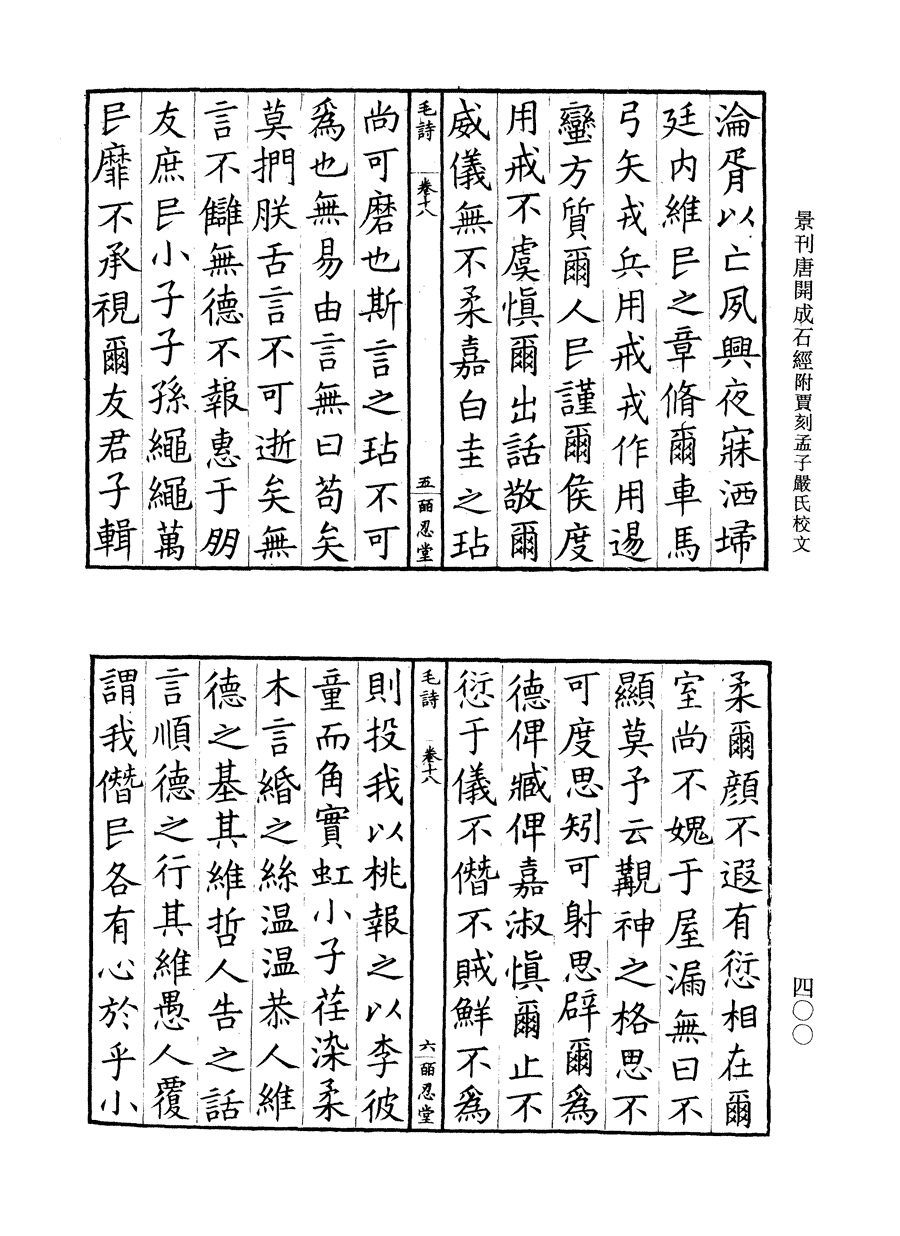 景刊唐開成石經附賈刻孟子嚴氏校文
淪胥以亡夙興夜寐洒埽
廷内維民之章脩爾車馬
弓矢戎兵用戒戎作用逷
蠻方質爾人民謹爾侯度
用戒不虞慎爾出話敬爾
威儀無不柔嘉白圭之玷
毛詩 卷十八 五 皕忍堂
尚可磨也斯言之玷不可
爲也無易由言無曰苟矣
莫捫朕舌言不可逝矣無
言不讎無德不報惠于朋
友庶民小子子孫繩繩萬
民靡不承視爾友君子輯
四〇〇
柔爾顔不遐有愆相在爾
室尚不媿于屋漏無曰不
顯莫予云覯神之格思不
可度思矧可射思辟爾爲
德俾臧俾嘉淑慎爾止不
愆于儀不僭不賊鮮不爲
毛詩 卷十八 六 皕忍堂
則投我以桃報之以李彼
童而角實虹小子荏染柔
木言緡之絲温温恭人維
德之基其維哲人告之話
言順德之行其維愚人覆
謂我僭民各有心於乎小